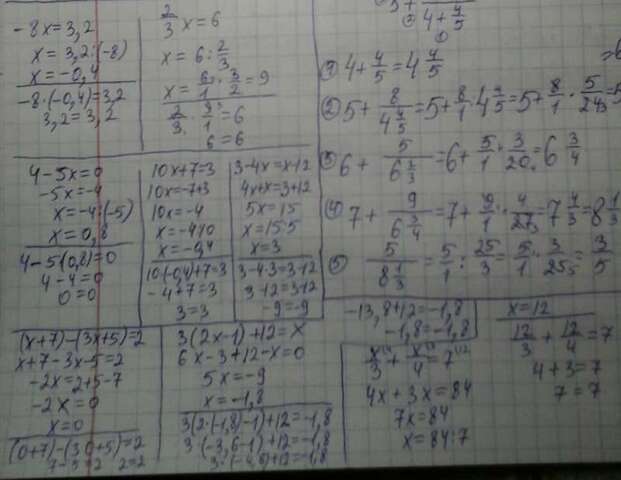 -8x=3,2
x=3,2:(-8)
x=-0,4
-8·(-0,4)=3,2
3,2=3,2
2/3 x=6
x=6:2/3
x=6/1·3/2=9
2/3·9/1=6
6=6
4-5x=0
-5x=-4
x=-4:(-5)
x=0,8
4-5(0,8)=0
4-4=0
0=0
10x+7=3
10x=-7+3
10x=-4
x=-4:10
x=-0,4
10(-0,4)+7=3
-4+7=3
3=3
3-4x=x-12
4x+x=3+12
5x=15
x=15:5
x=3
3-4·3=3-12
3-12=3-12
-9=-9
(x+7)-(3x+5)=2
x+7-3x-5=2
-2x=2+5-7
-2x=0
x=0
(0+7)-(3·0+5)=2
7-5=2 2=2
3(2x-1)+12=x
6x-3+12-x=0
5x=-9
x=-1,8
3(2·(-1,8)-1)+12=-1,8
3·(-3,6-1)+12=-1,8
3·(-4,6)+12=-1,8
4+4/5
① 4+4/5=4 4/5
② 5+8/(4 4/5)=5+8/1:4 4/5=5+8/1·5/24
③ 6+5/(6 2/3)=6+5/1·3/20=6 3/4
④ 7+9/(6 3/4)=7+9/1·4/27=7 4/3=8 1/3
⑤ 5/(8 1/3)=5/1:25/3=5/1·3/25=3/5
-13,8+12=-1,8
-1,8=-1,8
x/3+x/4=7
4x+3x=84
7x=84
x=84:7
x=12
12/3+12/4=7
4+3=7
7=7